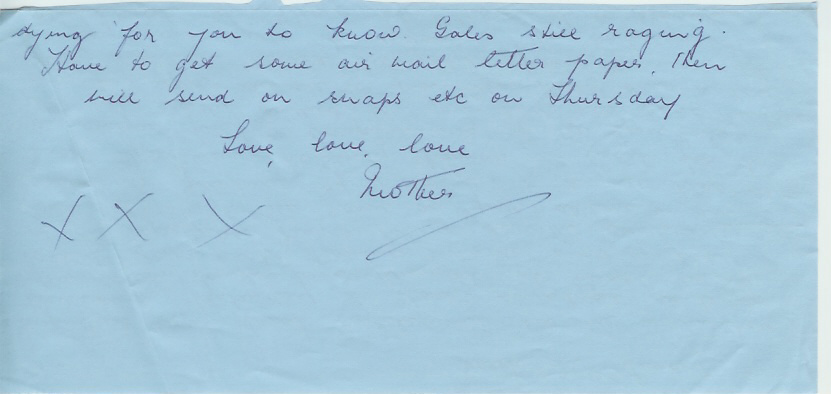 dying for you to know. Gales still raging.
Have to get some air mail letter paper, then
will send on snaps etc on Thursday
Love, love, love
Mother
X X X